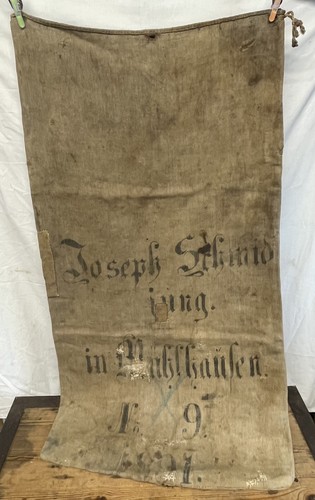 Joseph Schmid
jung.
in Mühlhausen.
No 9.
1891.